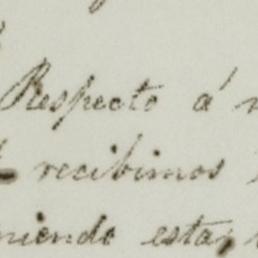 Respecto á
recibimos
niendo estas